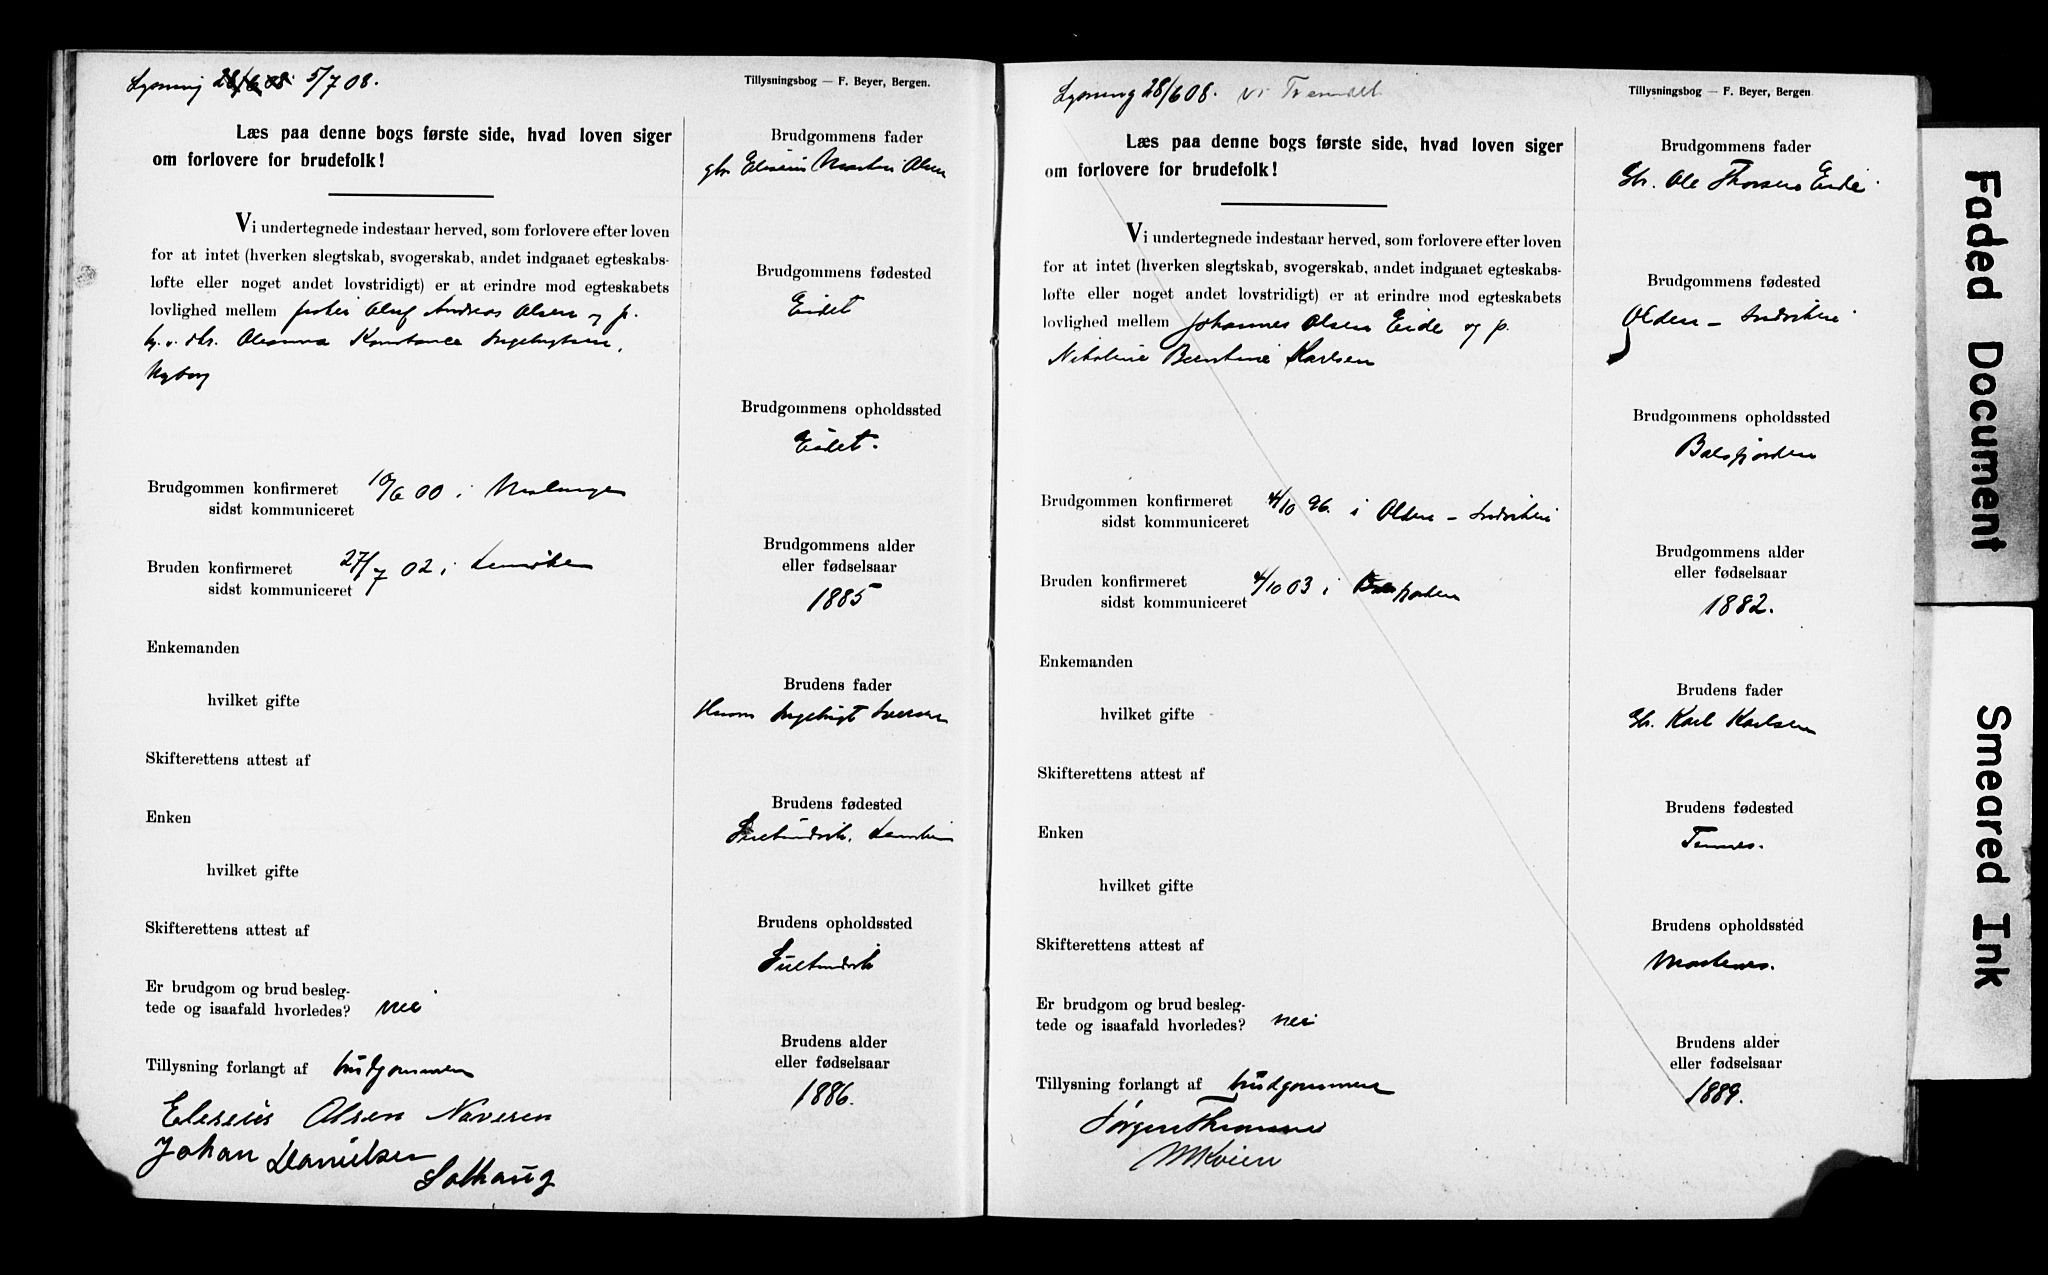 Lysning 28/6 08. 5/7 08.
Tillysningsbog — F. Beyer, Bergen.
Læs paa denne bogs første side, hvad loven siger
om forlovere for brudefolk!
Vi undertegnede indestaar herved, som forlovere efter loven
for at intet (hverken slegtskab, svogerskab, andet indgaaet egteskabs-
løfte eller noget andet lovstridigt) er at erindre mod egteskabets
lovlighed mellem Oluf Andreas Olsen og p.
Konstance
Nyborg
Brudgommen konfirmeret 10/6 00 i
sidst kommuniceret
Bruden konfirmeret 27/7 02 i
sidst kommuniceret
Enkemanden
hvilket gifte
Skifterettens attest af
Enken
hvilket gifte
Skifterettens attest af
Er brudgom og brud besleg-
tede og isaafald hvorledes? nei
Tillysning forlangt af brudgommen
Eleseus Olsen Naveren
Johan Danielsen
Solhaug
Brudgommens fader
Olsen
Brudgommens fødested
Eidet
Brudgommens opholdssted
Eidet.
Brudgommens alder
eller fødselsaar
1885
Brudens fader
Brudens fødested
Brudens opholdssted
Brudens alder
eller fødselsaar
1886.
Lysning 28/6 08.
Tillysningsbog — F. Beyer, Bergen.
Læs paa denne bogs første side, hvad loven siger
om forlovere for brudefolk!
Vi undertegnede indestaar herved, som forlovere efter loven
for at intet (hverken slegtskab, svogerskab, andet indgaaet egteskabs-
løfte eller noget andet lovstridigt) er at erindre mod egteskabets
lovlighed mellem Johannes Olsen Eide og p.
Nikoline Berntine Karlsen
Brudgommen konfirmeret 4/10 96. i Olden - Indviken
sidst kommuniceret
Bruden konfirmeret 4/10 03 i Balsfjorden
sidst kommuniceret
Enkemanden
hvilket gifte
Skifterettens attest af
Enken
hvilket gifte
Skifterettens attest af
Er brudgom og brud besleg-
tede og isaafald hvorledes? nei
Tillysning forlangt af brudgommen
Jørgen
M Kvien
Brudgommens fader
Gbr. Ole Thorsen Eide.
Brudgommens fødested
Olden - Indviken
Brudgommens opholdssted
Balsfjorden
Brudgommens alder
eller fødselsaar
1882.
Brudens fader
Gbr. Karl Karlsen
Brudens fødested
Tennes.
Brudens opholdssted
Mortenes.
Brudens alder
eller fødselsaar
1889.
Faded Document
Smeared Ink